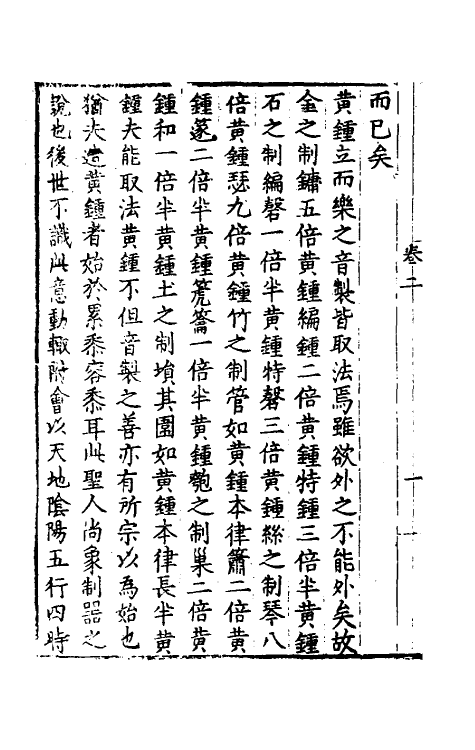 卷二
一
而已矣
黄鍾立而樂之音製皆取法焉雖欲外之不能外矣故
金之制鏞五倍黄鍾編鍾二倍黄鍾特鍾三倍半黄鍾
石之制編磬一倍半黄鍾特磬三倍黄鍾絲之制琴八
倍黄鍾瑟九倍黄鍾竹之制管如黄鍾本律簫二倍黄
鍾篴二倍半黄鍾篪籥一倍半黄鍾匏之制巢二倍黄
鍾和一倍半黄鍾土之制塤其圍如黄鍾本律長半黄
鍾夫能取法黄鍾不但音製之善亦有所宗以為始也
猶夫造黄鍾者始於累黍容黍耳此聖人尚象制器之
說也後世不識此意動輙附會以天地陰陽五行四時